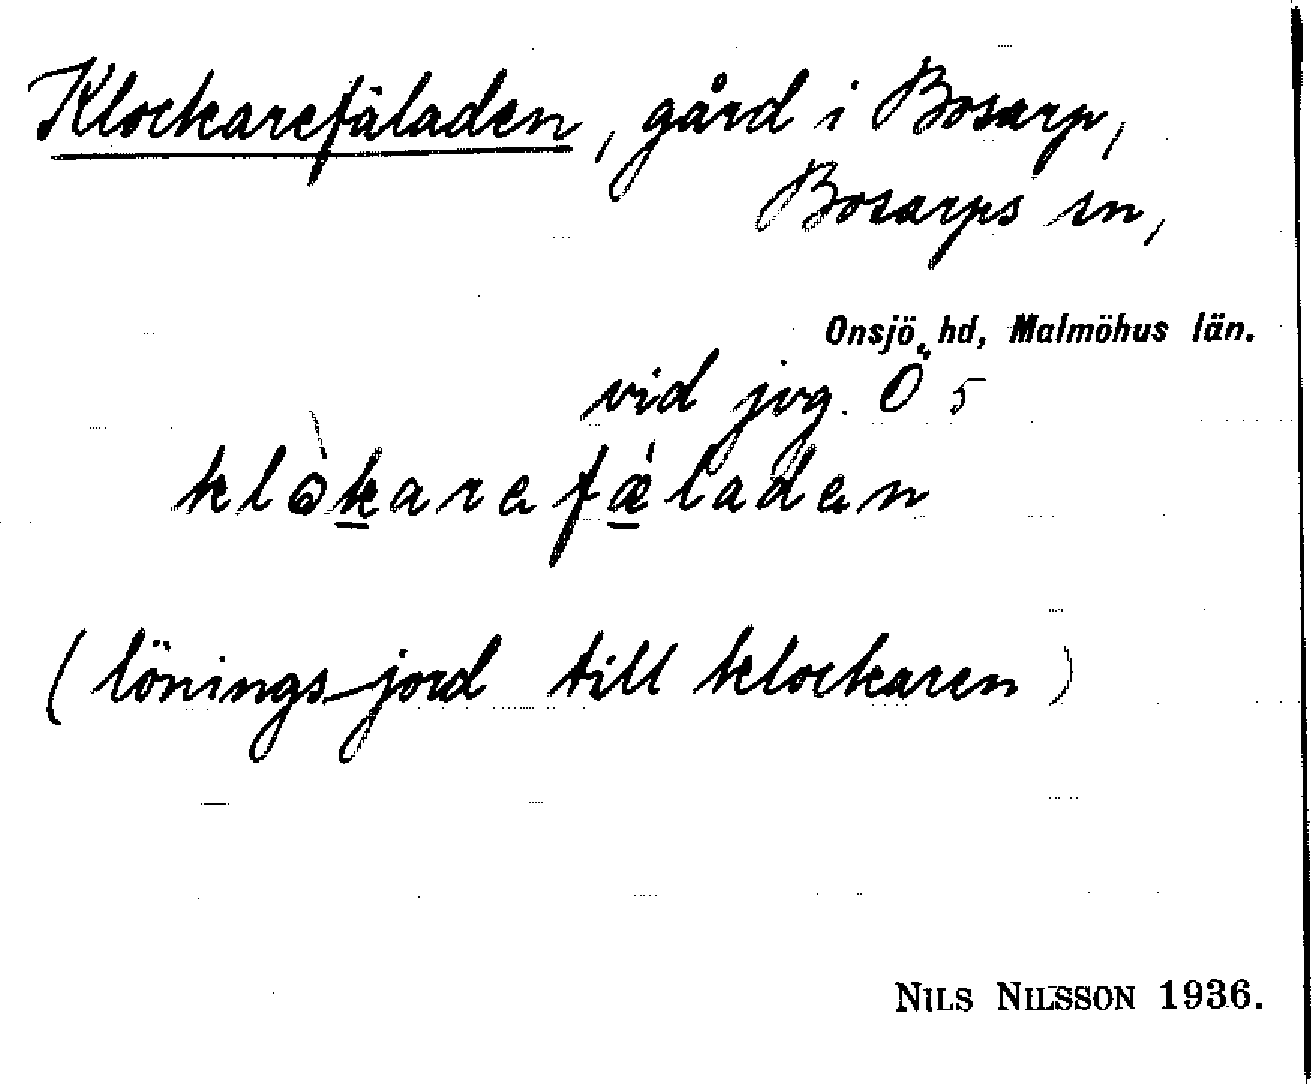 Klockarefäladen, gård i Bosarp,
Bosarps sn,
Onsjö hd, Malmöhus län.
vid jvg. Ö 5
klòkarefǽladen
(lönings-jord till klockaren)
NILS NILSSON 1936.